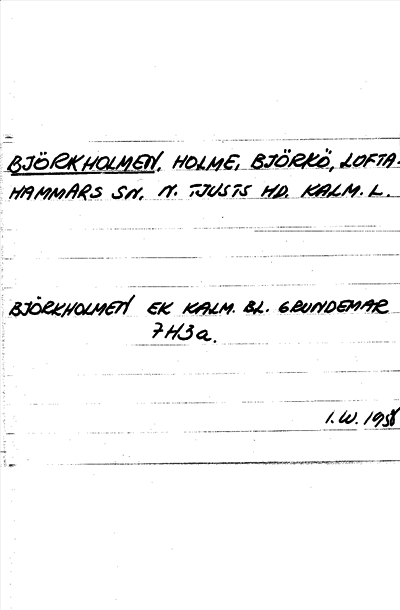 BJÖRKHOLMEN, HOLME, BJÖRKÖ, LOFTA-
HAMMARS SN, N. TJUSTS HD. KALM. L.
BJÖRKHOLMEN EK KALM. BL. GRUNDEMAR
7H3a.
I.W. 1958